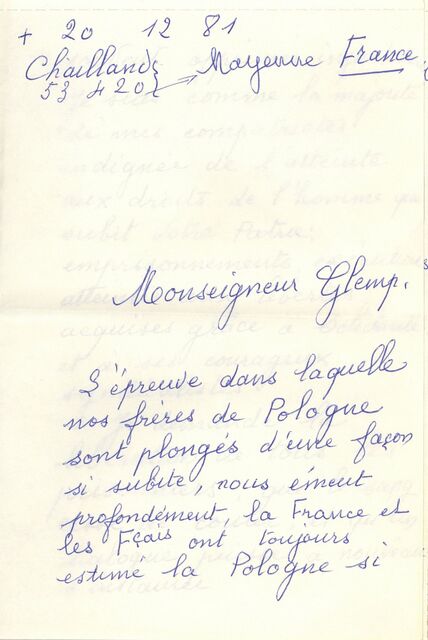 + 20 12 81
Chailland Mayenne France
53 420
Monseigneur Glemp.
L'épreuve dans laquelle
nos frères de Pologne
sont plongés d'une façon
si subite, nous émeut
profondément, la France et
les Fçais ont toujours
estimé la Pologne si